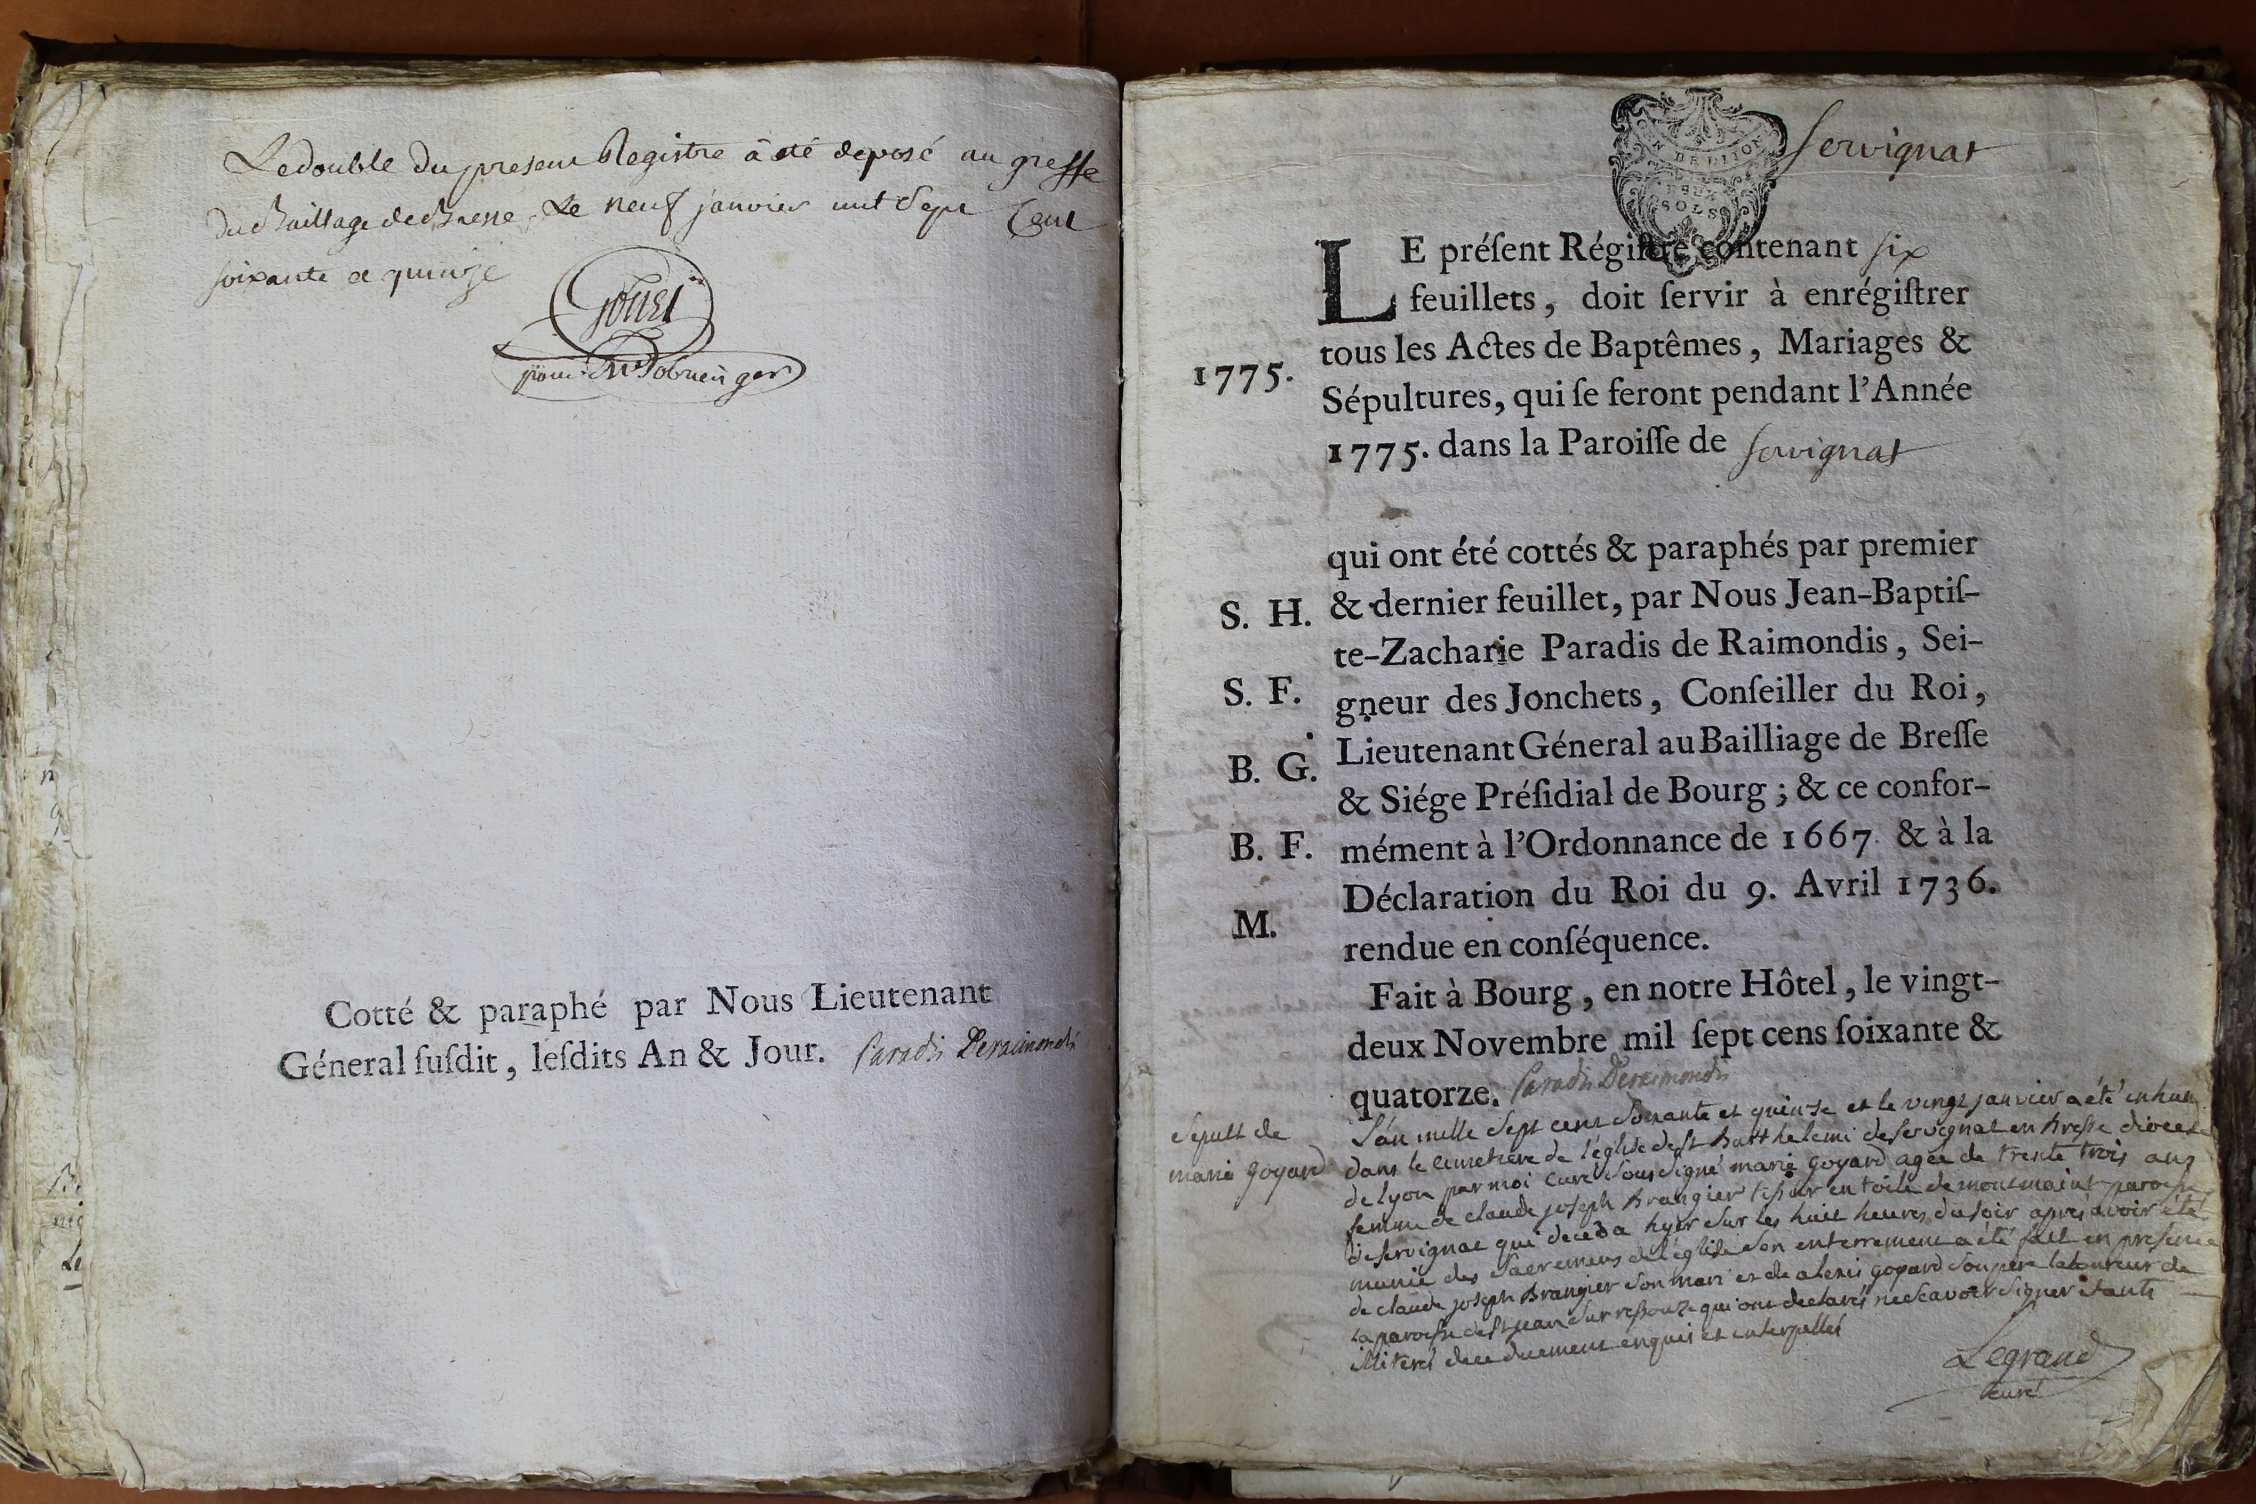 Le double du present Registre à été deposé au greffe
du Bailliage de Bresse, Le neuf janvier mil Sept Cent
soixante et quinze
Cotté & paraphé par Nous Lieutenant
Géneral ſuſdit, leſdits An & Jour. Paradis Deraimondis
GEN DE DIJON
DEUX
SOLS
Servignat
LE préſent Régiſtre contenant six
feuillets, doit ſervir à enrégiſtrer
tous les Actes de Baptêmes, Mariages &
1775.
Sépultures, qui ſe feront pendant l'Année
1775. dans la Paroiſſe de Servignat
qui ont été cottés & paraphés par premier
S. H.
& dernier feuillet, par Nous Jean-Baptiſ-
te-Zacharie Paradis de Raimondis, Sei-
S. F.
gneur des Jonchets, Conſeiller du Roi,
Lieutenant Géneral au Bailliage de Breſſe
B. G.
& Siége Préſidial de Bourg; & ce confor-
B. F.
mément à l'Ordonnance de 1667 & à la
Déclaration du Roi du 9. Avril 1736.
M.
rendue en conſéquence.
Fait à Bourg, en notre Hôtel, le vingt-
deux Novembre mil ſept cens ſoixante &
quatorze. Paradis Deraimondis
Sepult de
marie goyard
L'an mille Sept cent Soixante et quinze et le vingt janvier a été inhum
dans le cimetiere de l'église de St Barthelemi de Servignat en Bresse diocese
de lyon par moi curé Soussigné marie goyard agée de trente trois ans
femme de claude joseph Brangier tissier en toile de montmoint paroisse
de servignat qui deceda hyer sur les huit heures du soir après avoir été
munie des Sacremens de l'église son enterrement a été fait en presence
de claude joseph Brangier son mari et de alexis goyard son pere laboureur de
la paroisse de St jean sur ressouze qui ont declarés ne scavoir signer étants
illiterés de ce duement enquis et interpellés
Legrand
curé